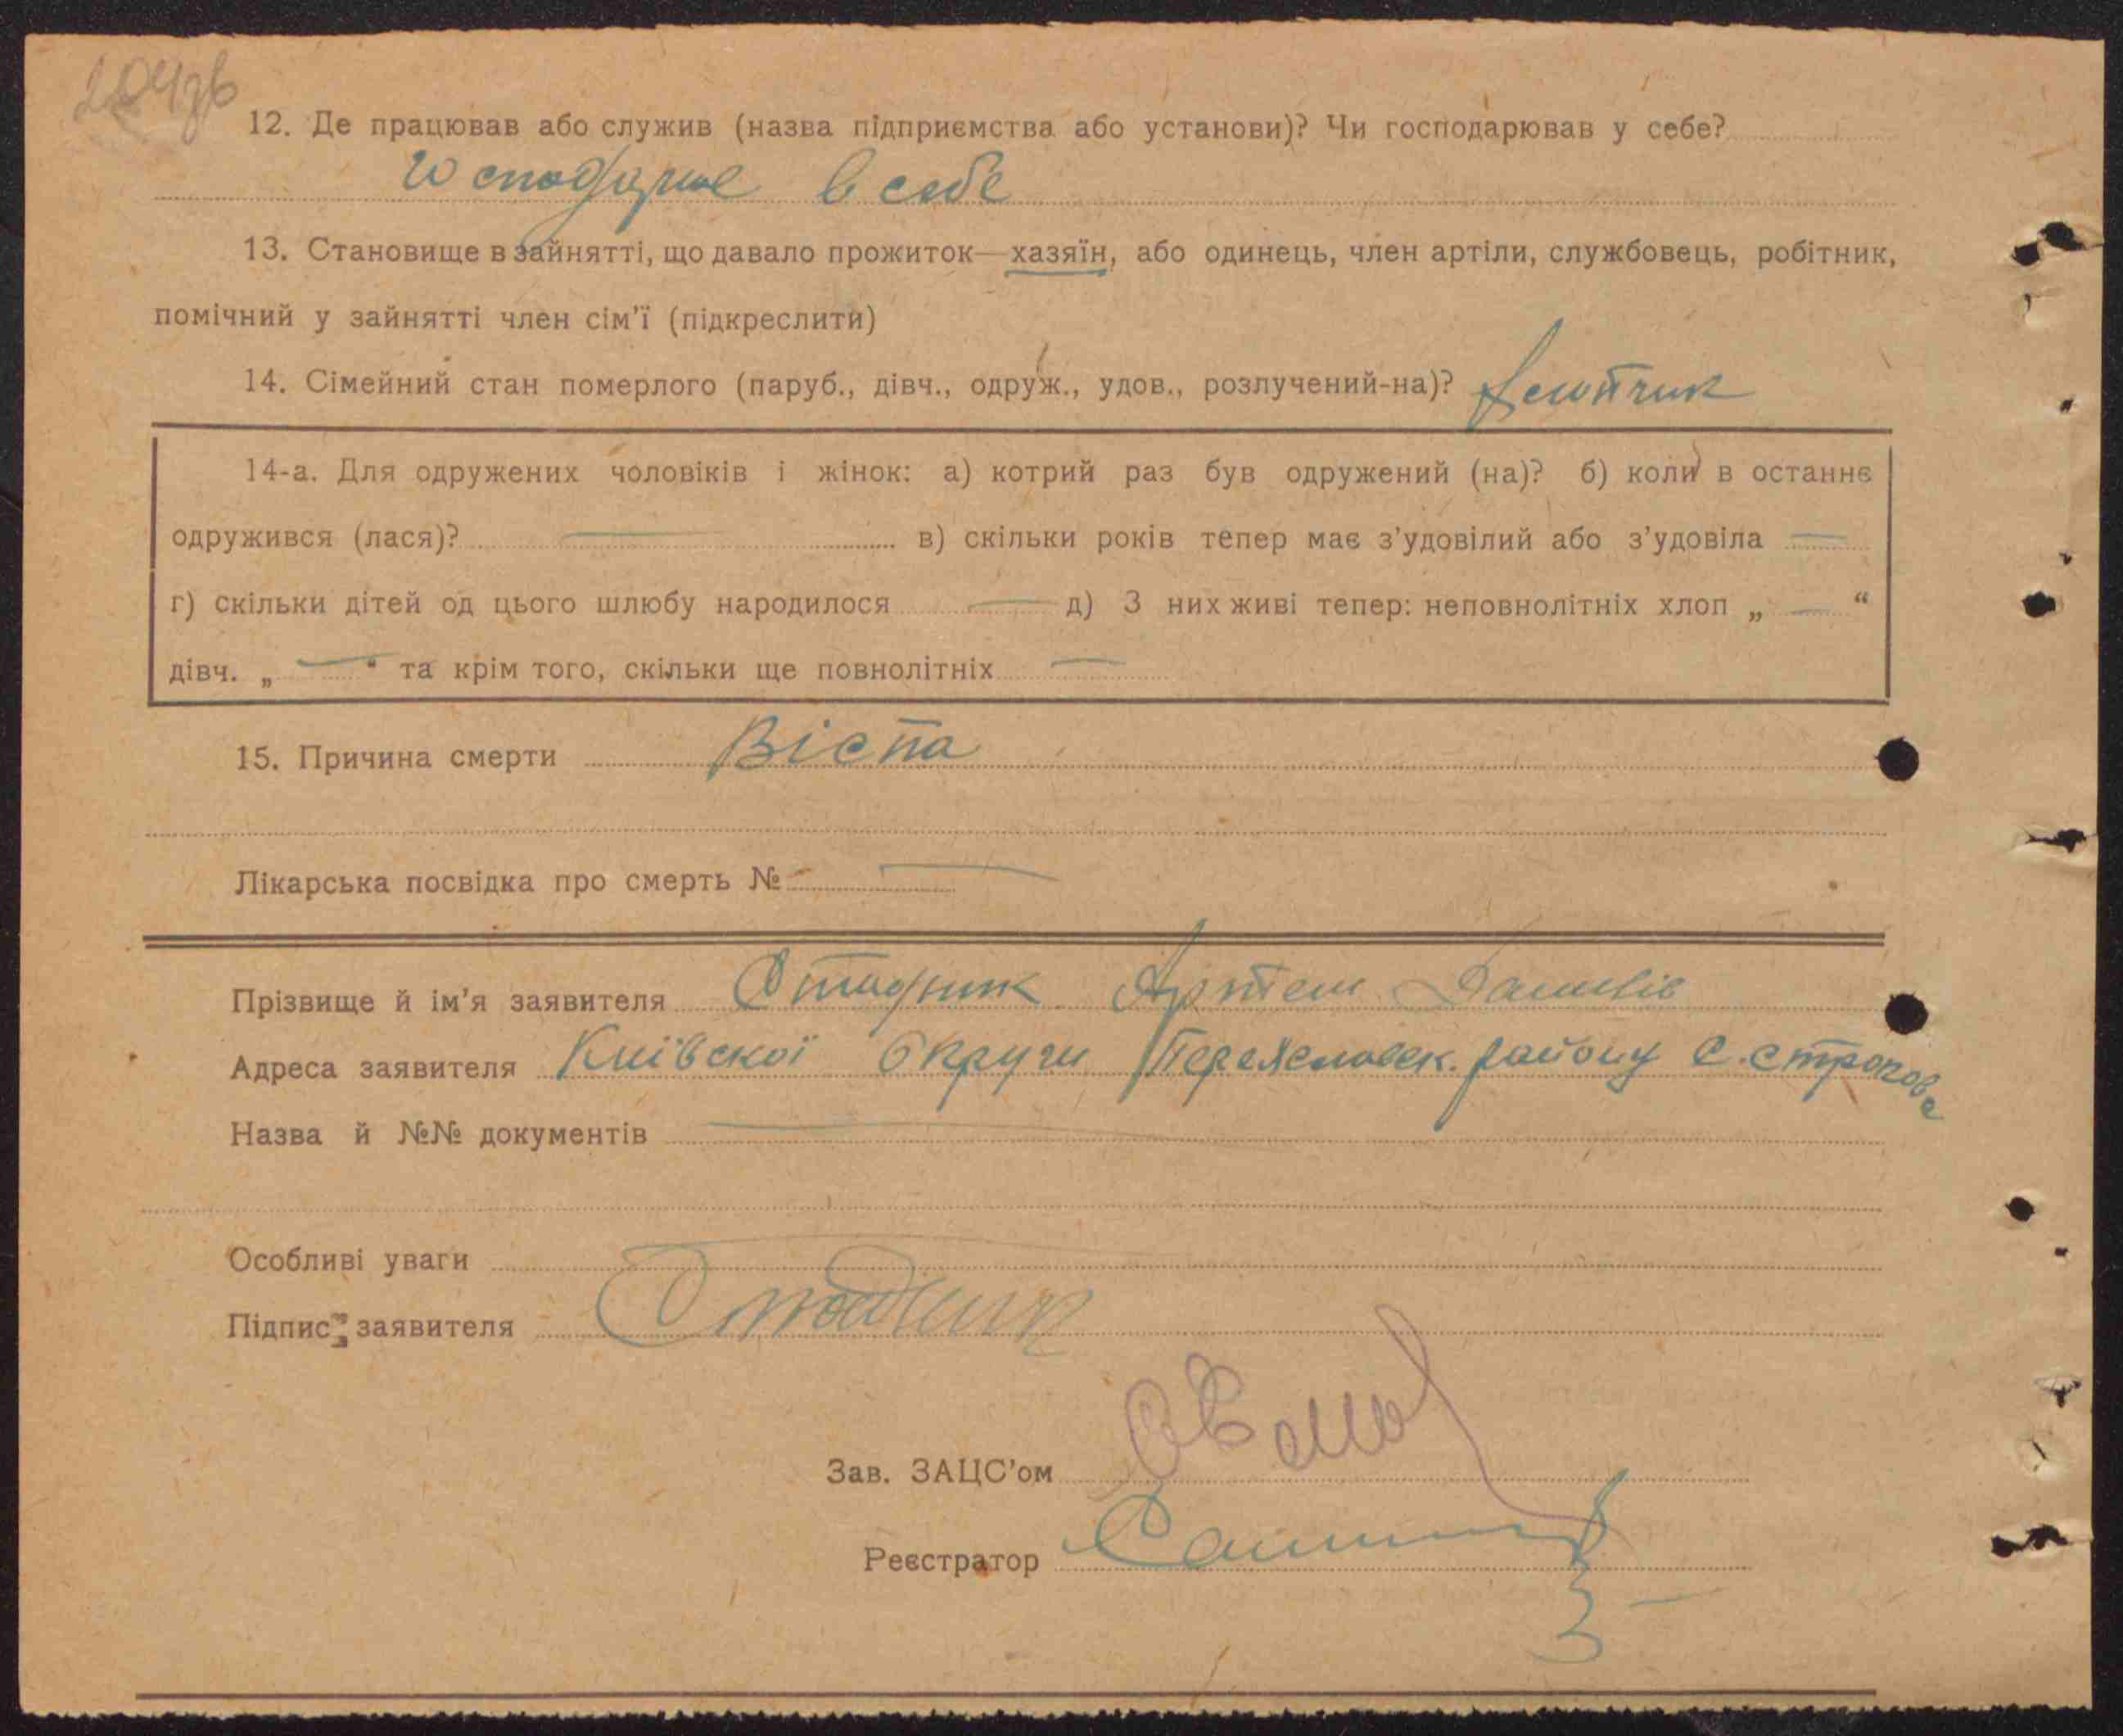 204зв
12. Де працював або служив (назва підприємства або установи)? Чи господарював у себе?
в себе
13. Становище в зайнятті, що давало прожиток—хазяїн, або одинець, член артіли, службовець, робітник,
помічний у зайнятті член сім'ї (підкреслити)
14. Сімейний стан померлого (паруб., дівч., одруж., удов., розлучений-на)?
14-а. Для одружених чоловіків і жінок: а) котрий раз був одружений (на)? б) коли в останнє
одружився (лася)? — в) скільки років тепер має з'удовілий або з'удовіла —
г) скільки дітей од цього шлюбу народилося — д) З них живі тепер: неповнолітніх хлоп „ — “
дівч. „ — “ та крім того, скільки ще повнолітніх —
15. Причина смерти Віспа
Лікарська посвідка про смерть № —
Прізвище й ім'я заявителя Стадник Артем Данилів
Адреса заявителя Київскої Округи Переяславск. району С. Строкове
Назва й №№ документів —
Особливі уваги
Підпис заявителя Стадник
Зав. ЗАЦС'ом
Реєстратор